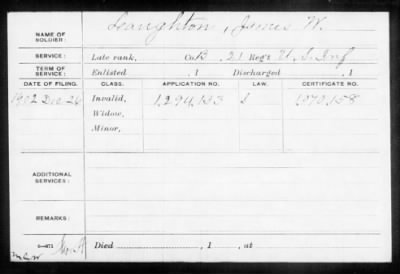 NAME OF SOLDIER: Laughton, James W.
SERVICE: Late rank, Co. B, 21 Reg't U.S. Inf
TERM OF SERVICE: Enlisted , 1 Discharged , 1
DATE OF FILING. CLASS. APPLICATION NO. LAW. CERTIFICATE NO.
1902 Dec 26 Invalid, 1,294,133 1070,158
Widow,
Minor,
ADDITIONAL SERVICES:
REMARKS:
Died , 1 , at